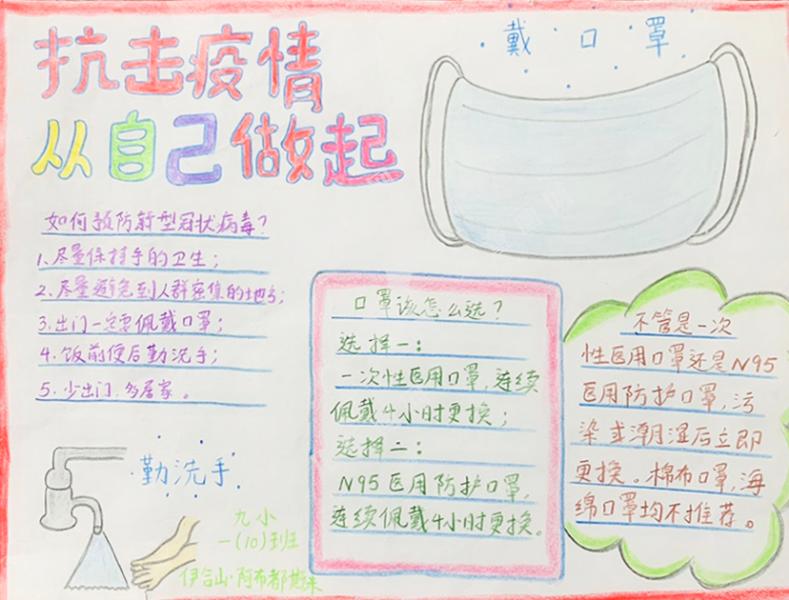 抗击疫情
从自己做起
戴口罩
如何预防新型冠状病毒？
1.尽量保持手的卫生；
2.尽量避免到人群密集的地方；
3.出门一定要佩戴口罩；
4.饭前便后勤洗手；
5.少出门，多居家。
口罩该怎么选？
选择一：
一次性医用口罩，连续
佩戴4小时更换；
选择二：
N95医用防护口罩，
连续佩戴4小时更换。
不管是一次
性医用口罩还是N95
医用防护口罩，污
染或潮湿后立即
更换。棉布口罩，海
绵口罩均不推荐。
勤洗手
九小
一(10)班
阿布都